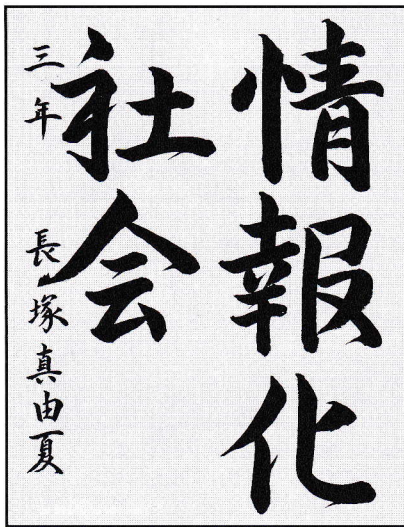 情報化
社会
三年 長塚真由夏